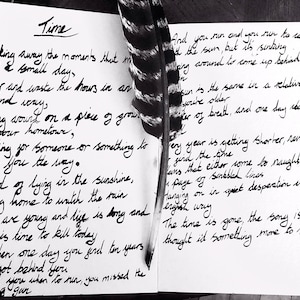 Time
king away the moments that m
a small day,
r and waste the hours in an
and way,
ng around on a piece of groun
your hometown,
ing for someone or something to
you the way.
d of lying in the sunshine,
g home to watch the rain
are young and life is long and
is time to kill today
en one day you find ten years
got behind you
you when to run, you missed the
g gun
And you run and you run to ca
the sun, but it's sinking
ing around to come up behind
sun is the same in a relative
you're older
er of breath, and one day clo
year is getting shorter, never
find the time
ans that either come to naught
a page of scribbled lines
anging on in quiet desperation is
english way
The time is gone, the song is
thought id something more to s